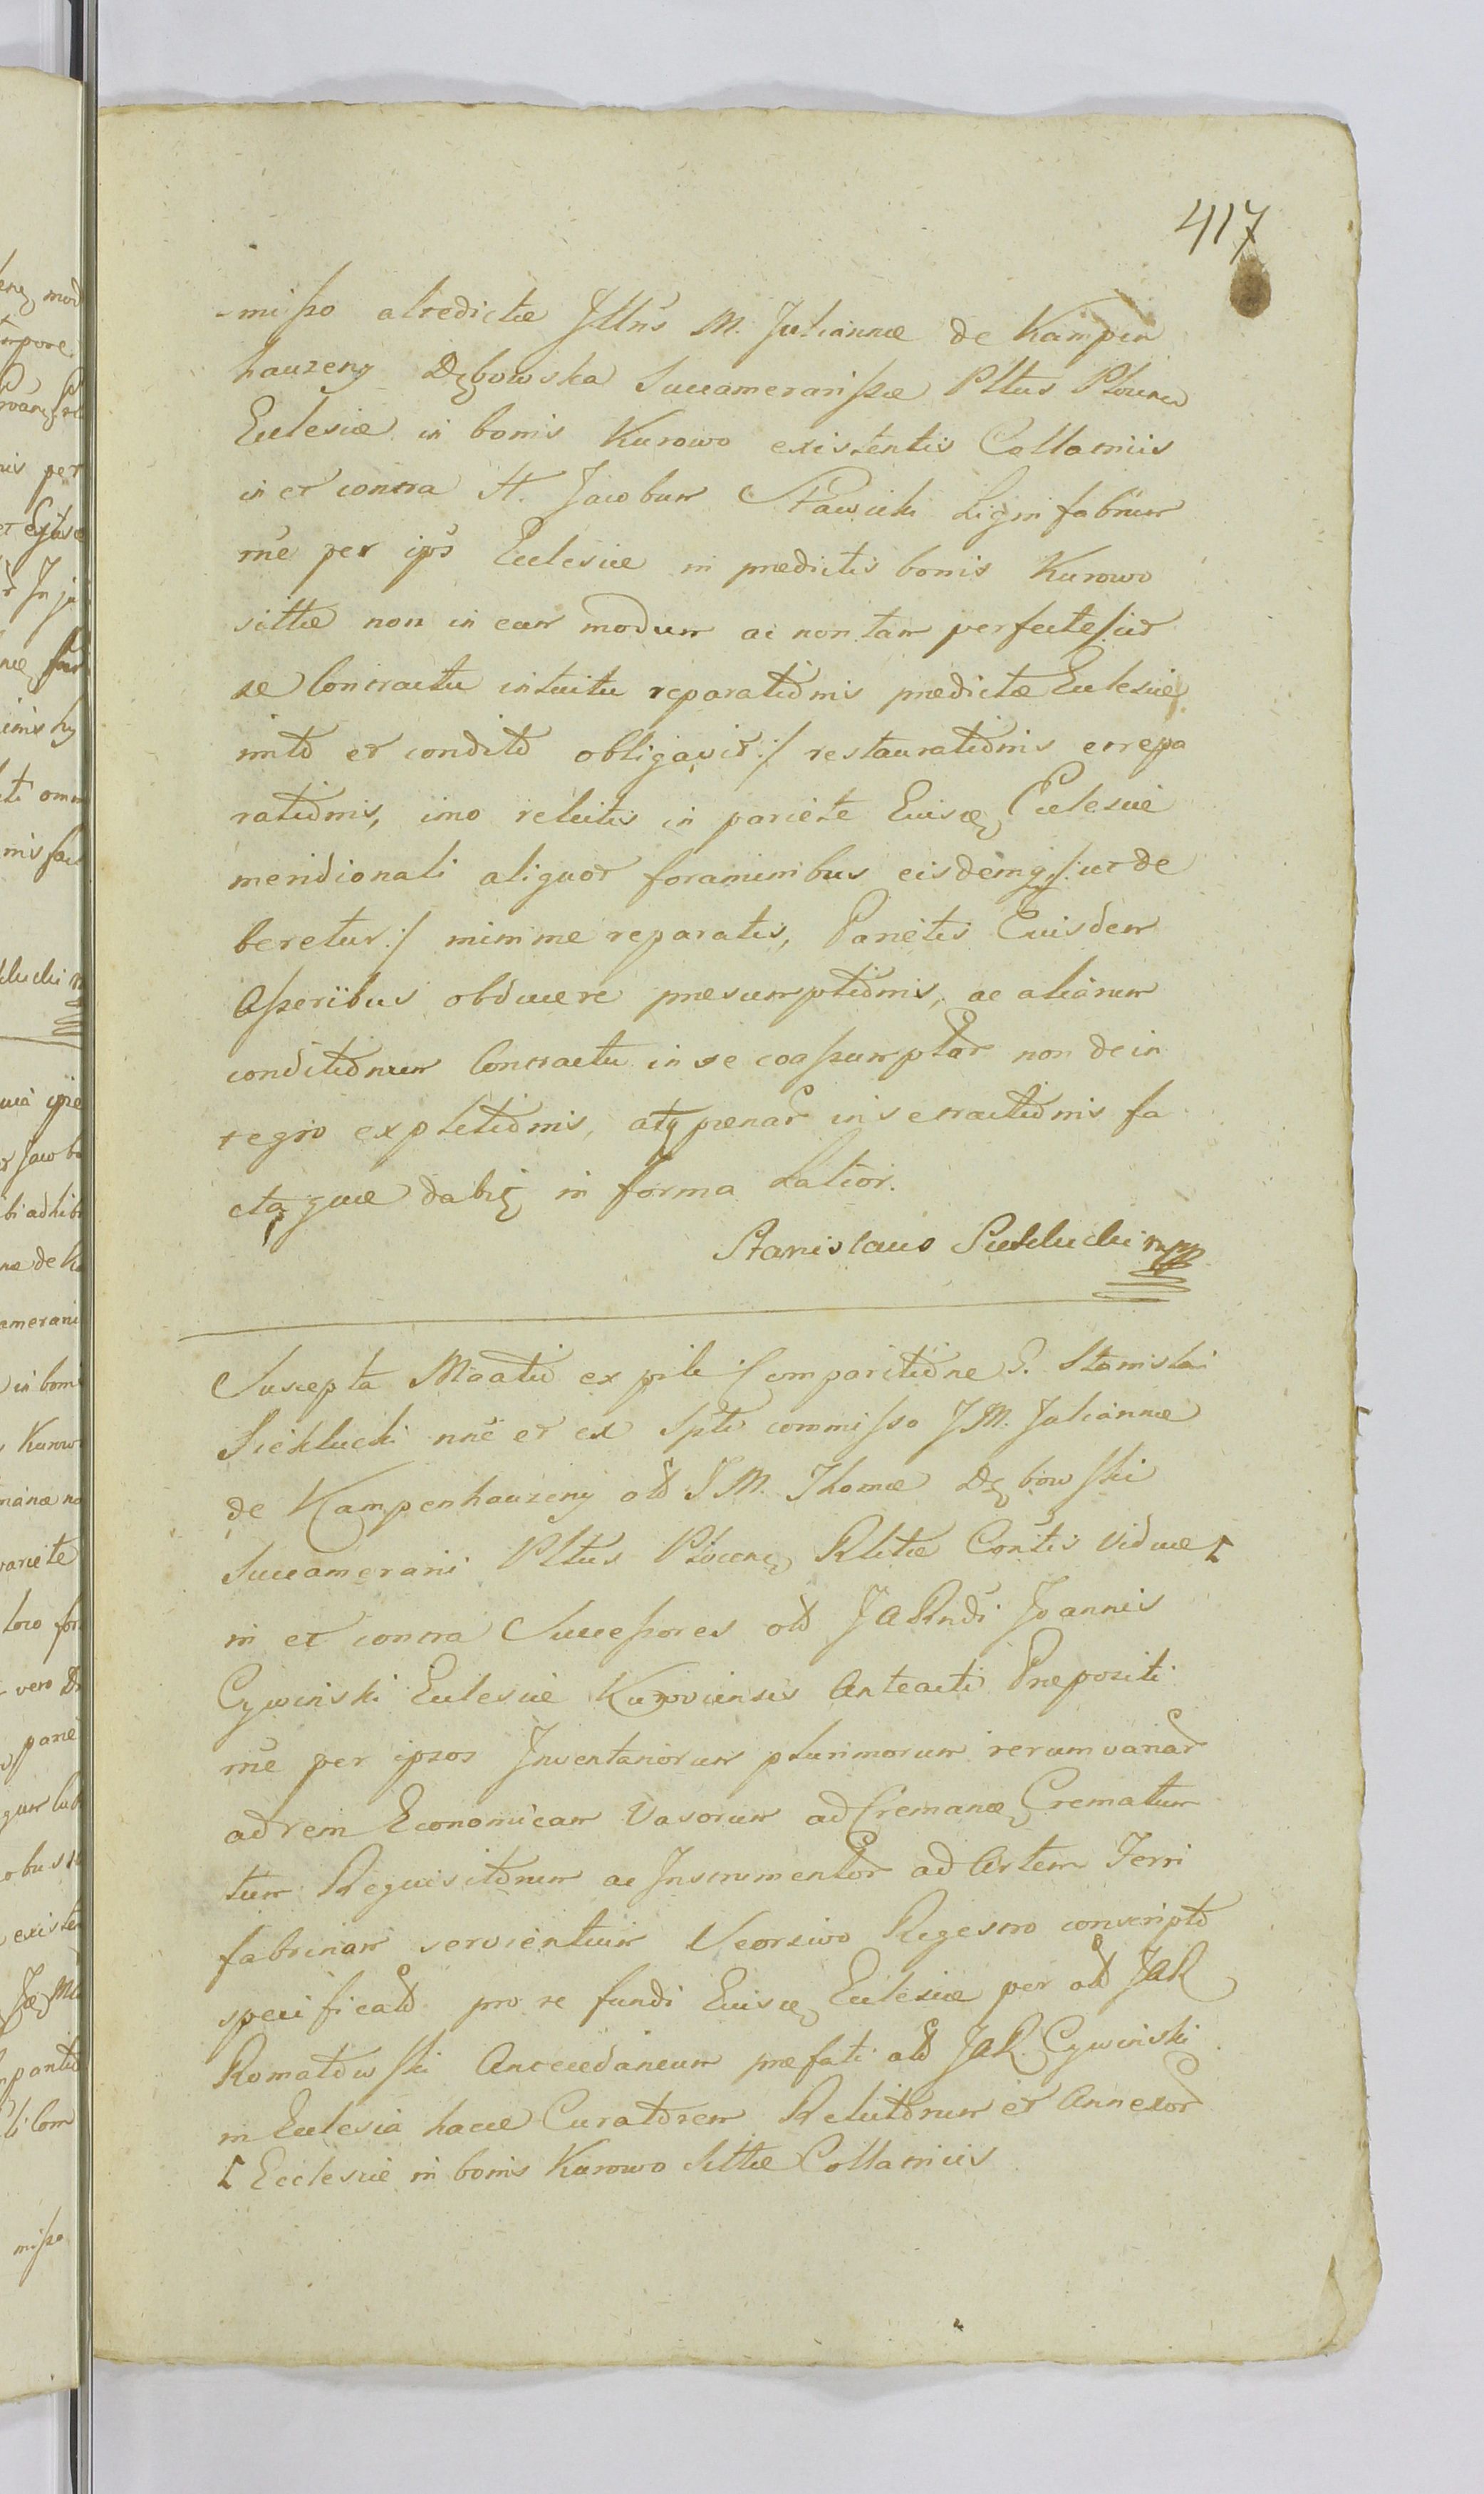 417
-misso altedictæ Jllris M. Juliannæ de Kampen
hauzeny Dębowska Succamerarissæ Pltus Plocen
Ecclesiæ in bonis Kurowo existentis Collatricis
in et contra H. Jacobum Sławicki Lignifabrum
rne per ips Ecclesiæ in prædictis bonis Kurowo
sittæ non in eum modum ac non tam perfecte /: ut
se Contractu intuitu reparationis prædictæ Ecclesiæ
inito et condito obligavit :/ restaurationis et repa
rationis, imo relictis in pariete Eiusq Ecclesiæ
meridionali aliquot foraminibus eisdemq /: ut de
beretur :/ minime reparatis, Parietis Eiusdem
Asseribus obducere præsumptionis, ac aliarum
conditionum Contractu in se coassumptar non de in
tegro expletionis, atq pænar in se contractionis fa
cta quæ dabiq in forma Latior.
Stanislaus Siekłucki mpp
Suscepta Maatio ex prsli Comparitione G. Stanislai
Siekłucki nne et ex spli commisso J M. Juliannæ
de Kampenhauzeny olt J M. Thomæ Dębowski
Succamerarii Pltus Plocenę Rlictæ Contis viduæ
in et contra Successores olt JARndi Joannis
Cywinski Ecclesiæ Kuroviensis Anteacti Præpositi
rne per ipsos Inventariorum plurimorum rerum variar
ad rem Economicam Vasorum ad Cremanę Crematum
tum Requisitorum ac Instrumentor ad Artem Ferri
fabrinam servientium Seorsivo Regestro conscripto
specificato pro re fundi Eiusę Ecclesiæ per olt JAR
Romatowski Antecedaneum præfati olt JAR. Cywinski
in Ecclesia hacce Curatorem Relictorum et Annexor
Ecclesiæ in bonis Kurowo Sittæ Collatricis